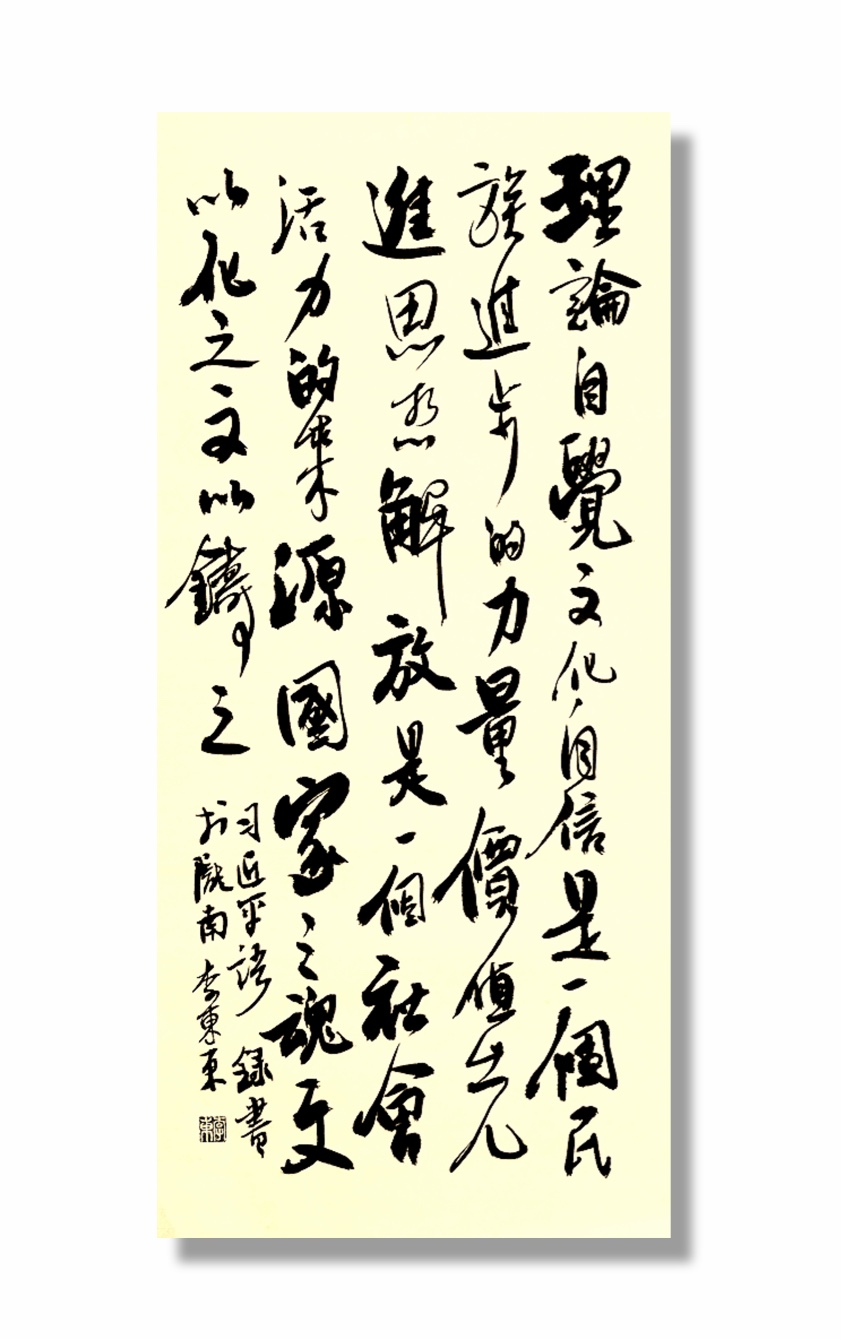 理論自覺文化自信是一個民
族進步的力量價值先
進思想解放是一個社會
活力的來源國家之魂文
以化之文以鑄之
习近平語錄書
於隴南李東東